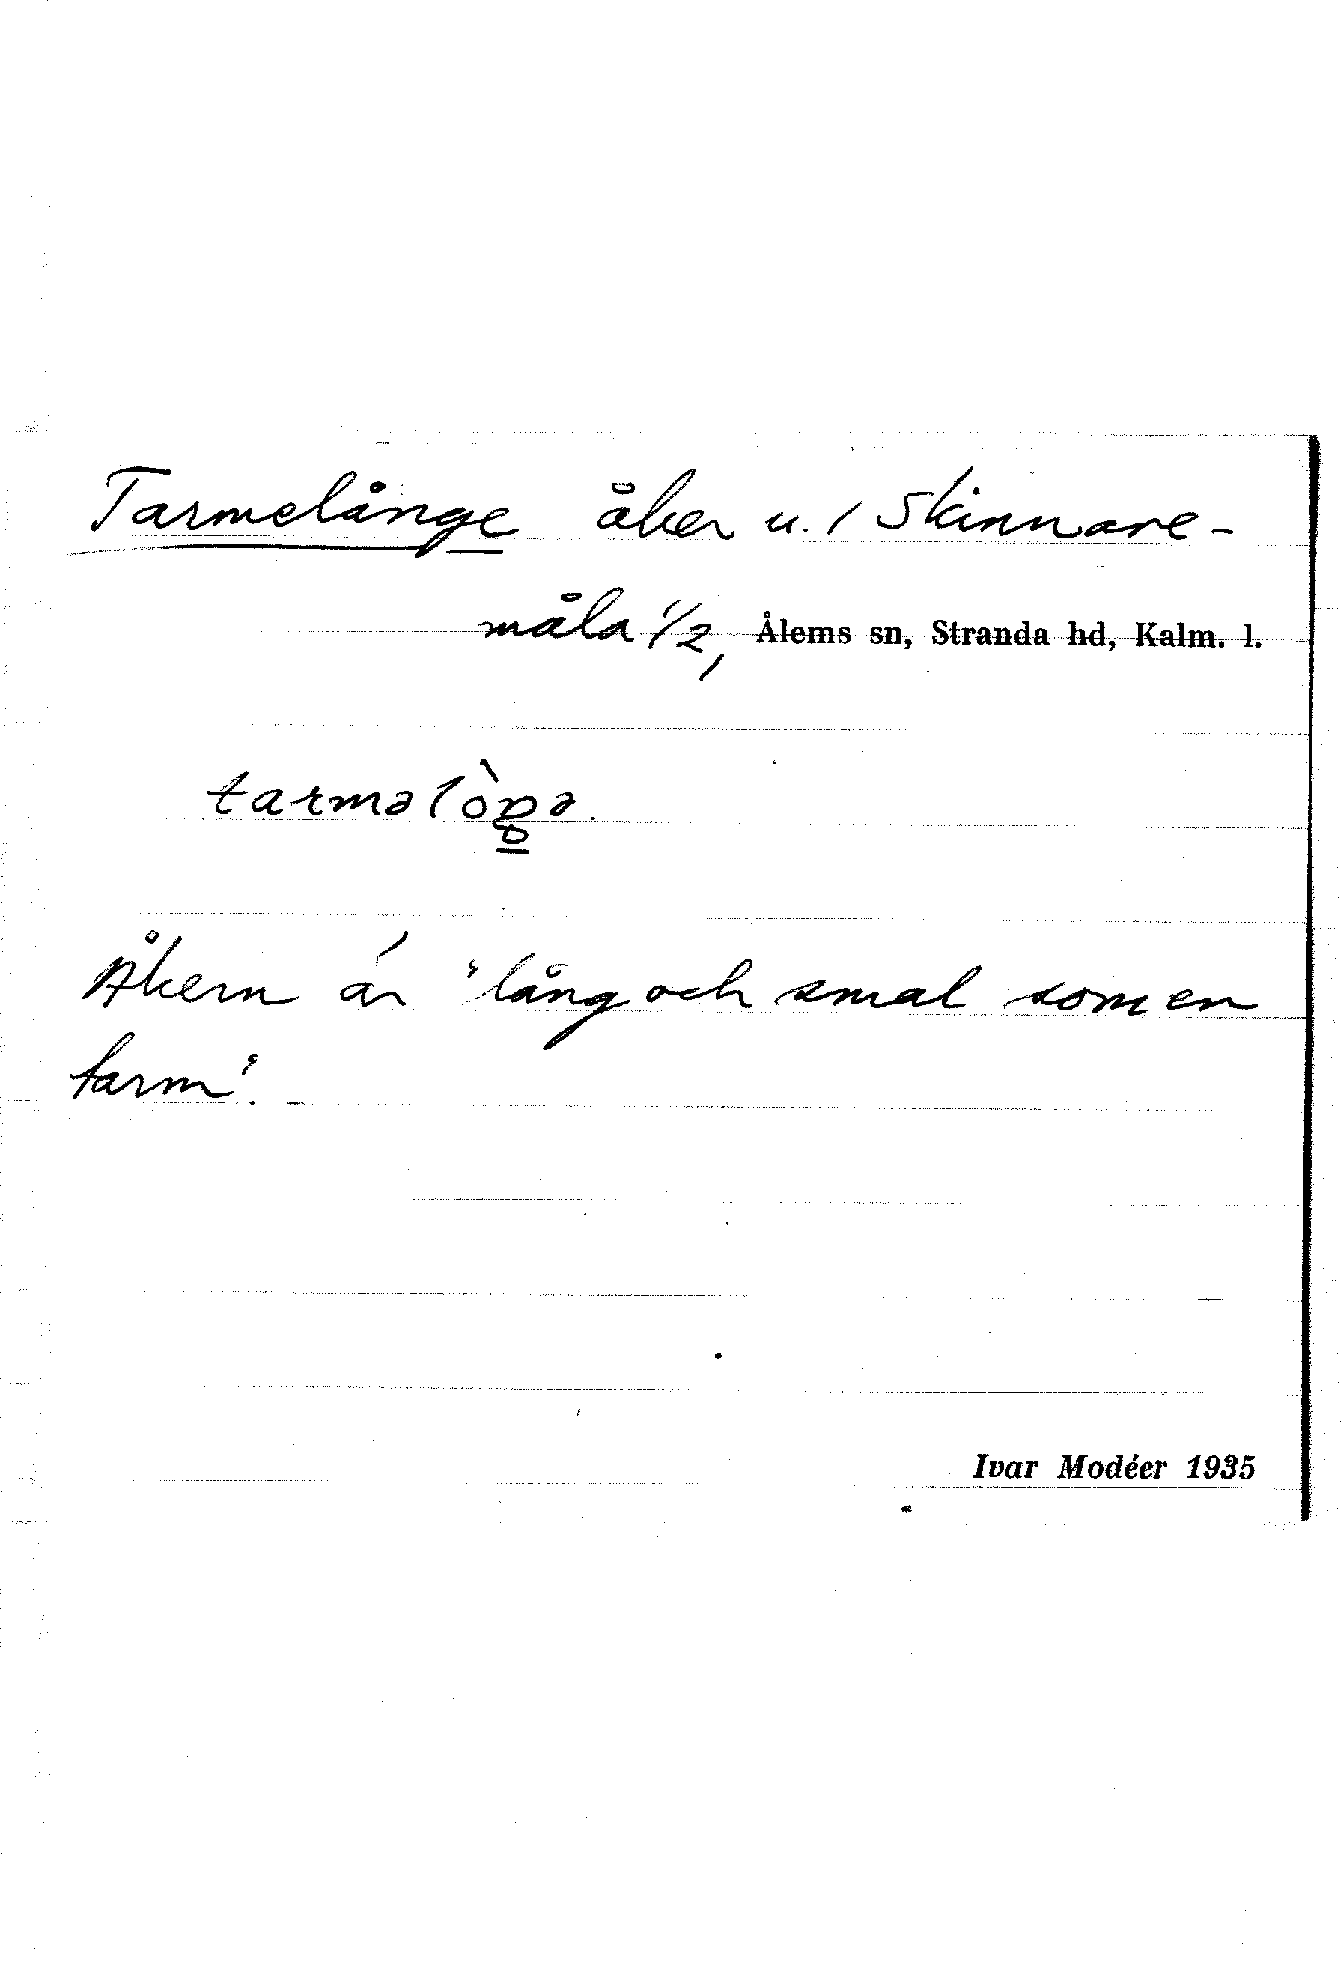 Tarmelånge åker u. / Skinnare-
måla 1/2, Ålems sn, Stranda hd, Kalm. l.
Åkern är "lång och smal som en
tarm".
Ivar Modéer 1935